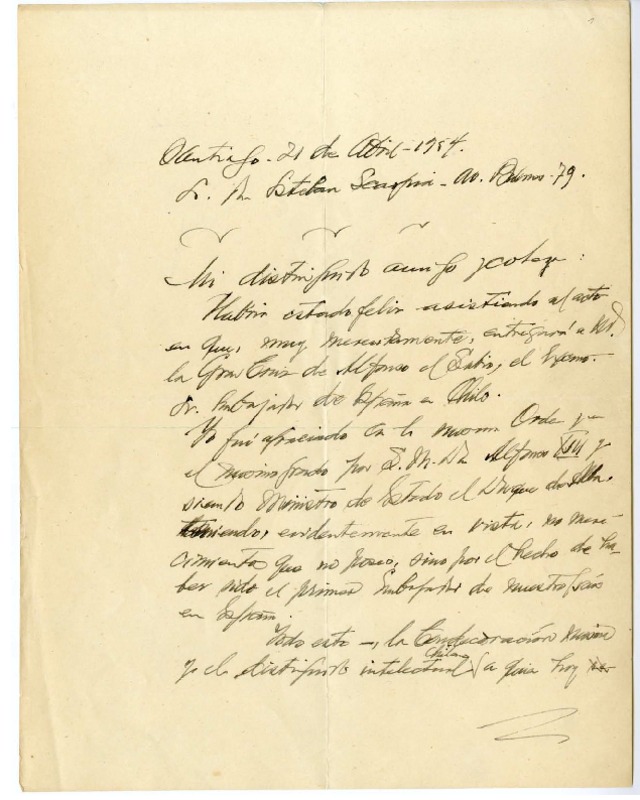 Santiago. 21 de Abril - 1954.
Sr. Dn. Esteban Scarpa - Av. Bulnes - 79.
Mi distinguido amigo y colega:
Habría estado feliz asistiendo al acto
en que, muy merecidamente, entregará a Ud.
la Gran Cruz de Alfonso el Sabio, el Excmo.
Sr. Embajador de España en Chile.
Yo fuí agraciado en la misma Orden y
el mismo grado por S. M. Dn. Alfonso XIII y
siendo Ministro de Estado el Duque de Alba.
teniendo, evidentemente en vista, no mere-
cimientos que no poseo, sino por el hecho de ha-
ber sido el primer Embajador de nuestro país
en España.
Todo esto -, la Condecoración misma
y el distinguido intelectual Chileno a quien hoy